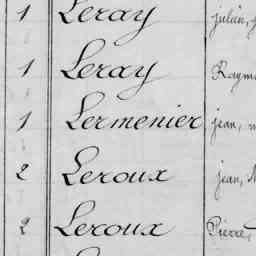 1 Leray julien,
1 Leray Raym
1 Lermenier jean,
2 Leroux jean,
2 Leroux Pierre,